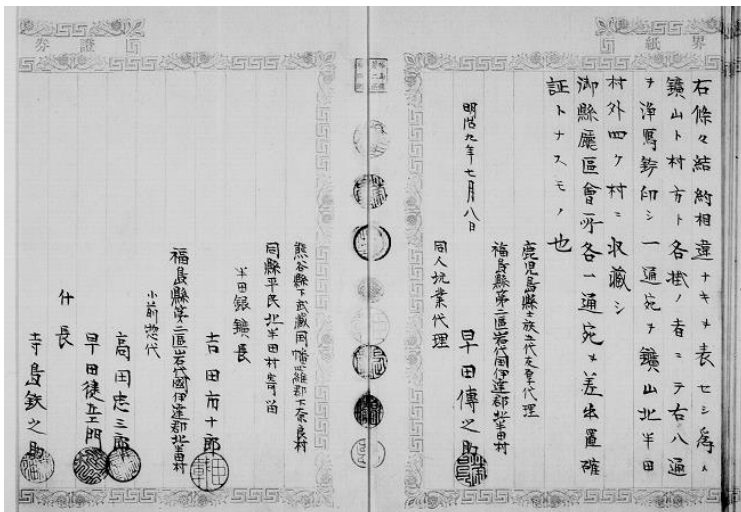 界紙
右條々結約相違ナキヲ表セシ為メ
鑛山ト村方ト各掛ノ者ニテ右八通
ヲ浄冩鈐印シ一通宛ヲ鑛山北半田
村外四ケ村ニ収藏シ
御縣廳區會所各一通宛ヲ差出置確
証トナスモノ也
明治九年七月八日
鹿児島縣士族五代友厚代理
福島縣第二區岩代国伊達郡北半田村
早田傳之助
同人坑業代理
證券
熊谷縣下武藏国幡羅郡下奈良村
同縣平民北半田村寄留
半田銀鑛長
吉田市十郎
福島縣第二區岩代國伊達郡北半田村
小前惣代
高田忠三郎
早田後左エ門
什長
寺島鉄之助